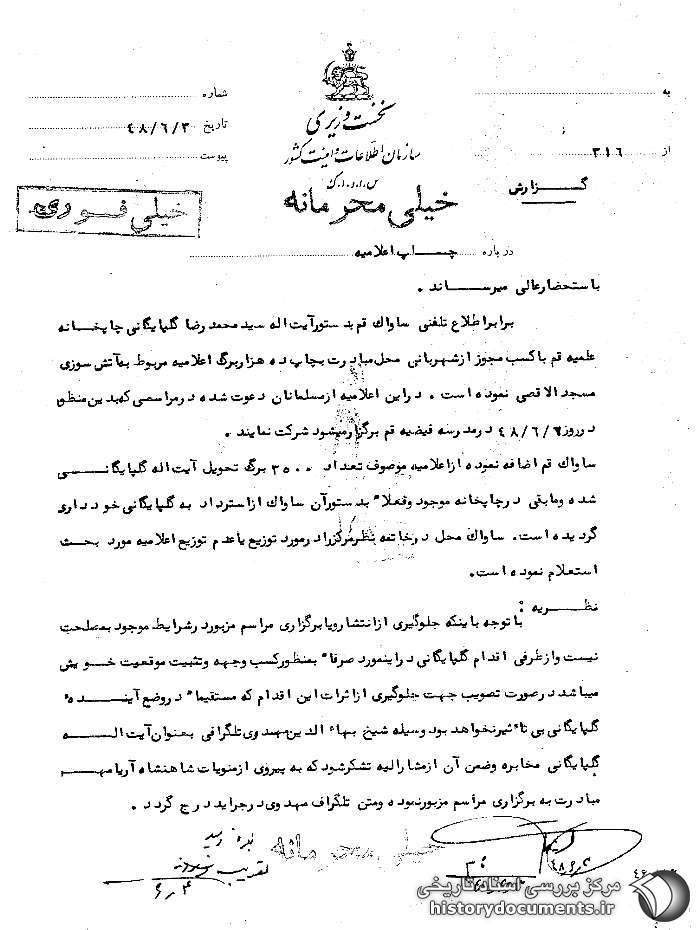 نخست وزیری
سازمان اطلاعات و امنیت کشور
س.ا.و.ا.ک
به
از ۳۱۶
شماره
تاریخ ۴۸/۶/۳
پیوست
گزارش
خیلی محرمانه
خیلی فوری
درباره چاپ اعلامیه
باستحضارعالی میرساند .
برابراطلاع تلفنی ساواک قم بدستورآیت اله سید محمد رضا گلپایگانی چاپخانه
علمیه قم باکسب مجوز ازشهربانی محل مبادرت بچاپ ده هزاربرگ اعلامیه مربوط به آتش سوزی
مسجد الاقصی نموده است . در این اعلامیه ازمسلمانان دعوت شده درمراسمی که بدین منظور
در روز ۴۸/۶/۶ در مدرسه فیضیه قم برگزارمیشود شرکت نمایند .
ساواک قم اضافه نموده ازاعلامیه موصوف تعداد ۳۵۰۰ برگ تحویل آیت اله گلپایگانی
شده ومابقی درچاپخانه موجود وفعلا" بدستورآن ساواک ازاسترداد به گلپایگانی خودداری
گردیده است. ساواک محل درخاتمه نظرمرکزرادرمورد توزیع یاعدم توزیع اعلامیه مورد بحث
استعلام نموده است.
نظریه :
با توجه باینکه جلوگیری ازانتشارویابرگزاری مراسم مزبوردرشرایط موجود بمصلحت
نیست وازطرفی اقدام گلپایگانی دراینمورد صرفا" بمنظورکسب وجهه وتثبیت موقعیت خویش
میباشد درصورت تصویب جهت جلوگیری ازاثرات این اقدام که مستقیما" در وضع آینده
گلپایگانی بی تاثیرنخواهد بود وسیله شیخ بهاء الدین مهدوی تلگرافی بعنوان آیت اله
گلپایگانی مخابره وضمن آن ازمشارالیه تشکرشود که به پیروی ازمنویات شاهنشاه آریامهر
مبادرت به برگزاری مراسم مزبورنموده ومتن تلگراف مهدوی درجراید درج گردد .
خیلی محرمانه
۴۸/۶/۳
مرکز بررسی اسناد تاریخی
historydocuments.ir